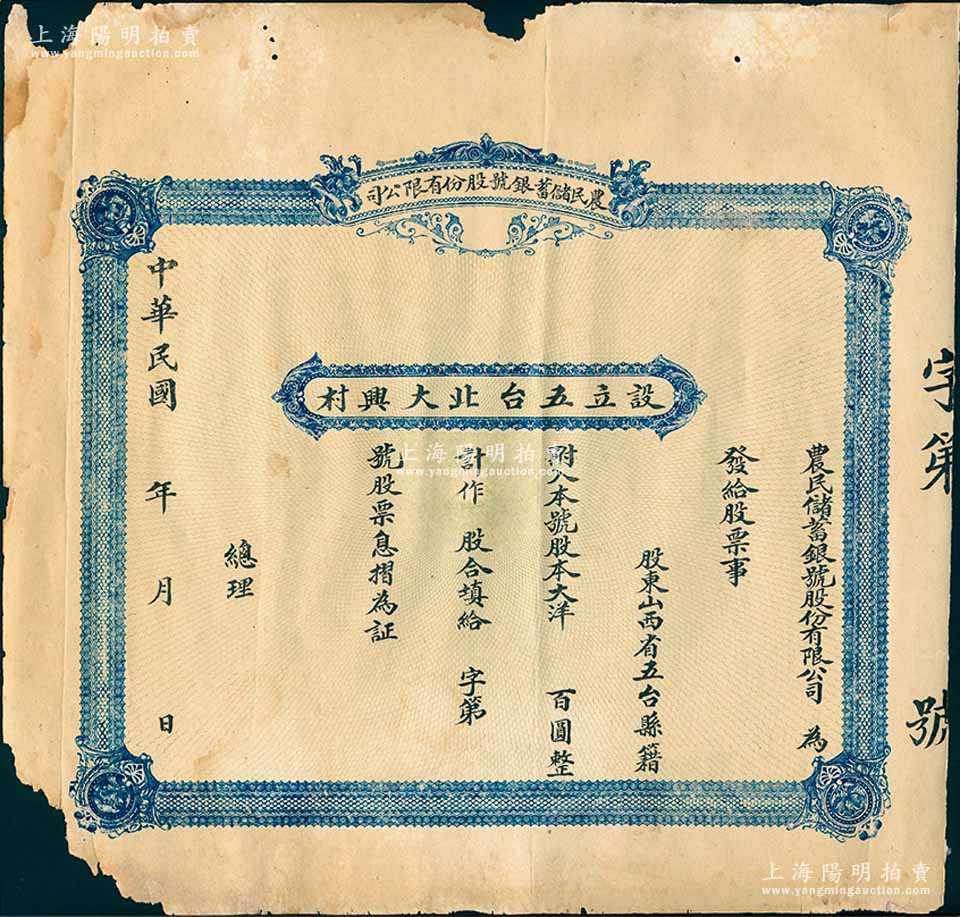 上海陽明拍賣
www.yangmingauction.com
農民儲蓄銀號股份有限公司
設立五台北大興村
字第 號
農民儲蓄銀號股份有限公司 為
發給股票事
股東山西省五台縣籍
附入本號股本大洋 百圓整
計作 股合填給 字第
號股票息摺為証
總理
中華民國 年 月 日
上海陽明拍賣
www.yangmingauction.com
上海陽明拍賣
www.yangmingauction.com